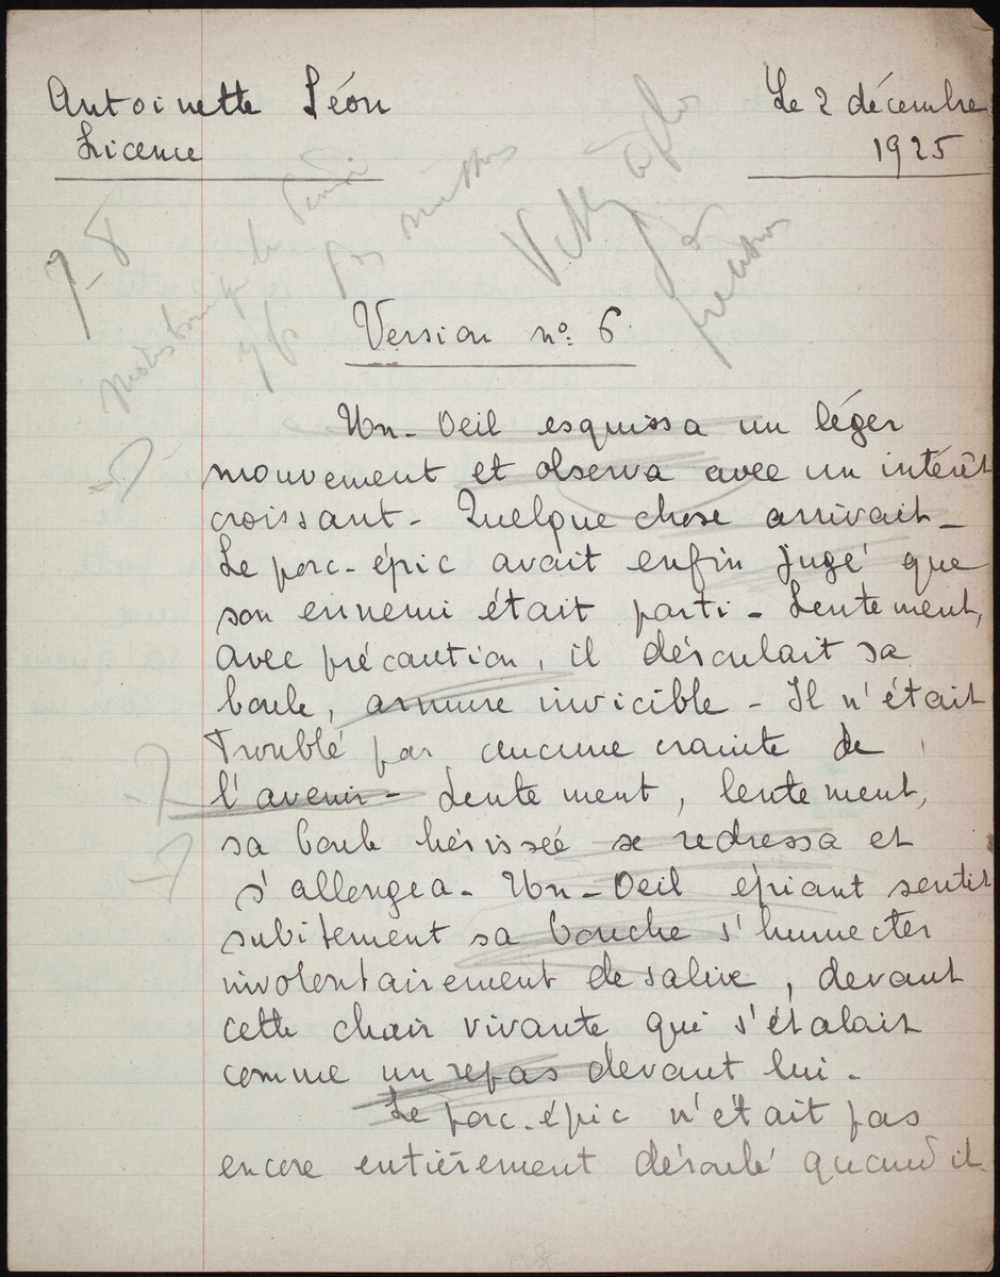 Antoinette Léon
Le 2 décembre
Licence
1925
7-8
Version nº: 6
Un-Oeil esquissa un léger
mouvement et observa avec un intérêt
croissant - Quelque chose arrivait -
Le porc-épic avait enfin jugé que
son ennemi était parti - Lentement,
avec précaution, il déroulait sa
boule, armure invicible - Il n'était
Troublé par aucune crainte de
l'avenir - Lentement, lentement,
sa boule hérissée se redressa et
s'allongea - Un-Oeil épiant sentit
subitement sa bouche s'humecter
involontairement de salive, devant
cette chair vivante qui s'étalait
comme un repas devant lui -
Le porc-épic n'était pas
encore entièrement déroulé quand il